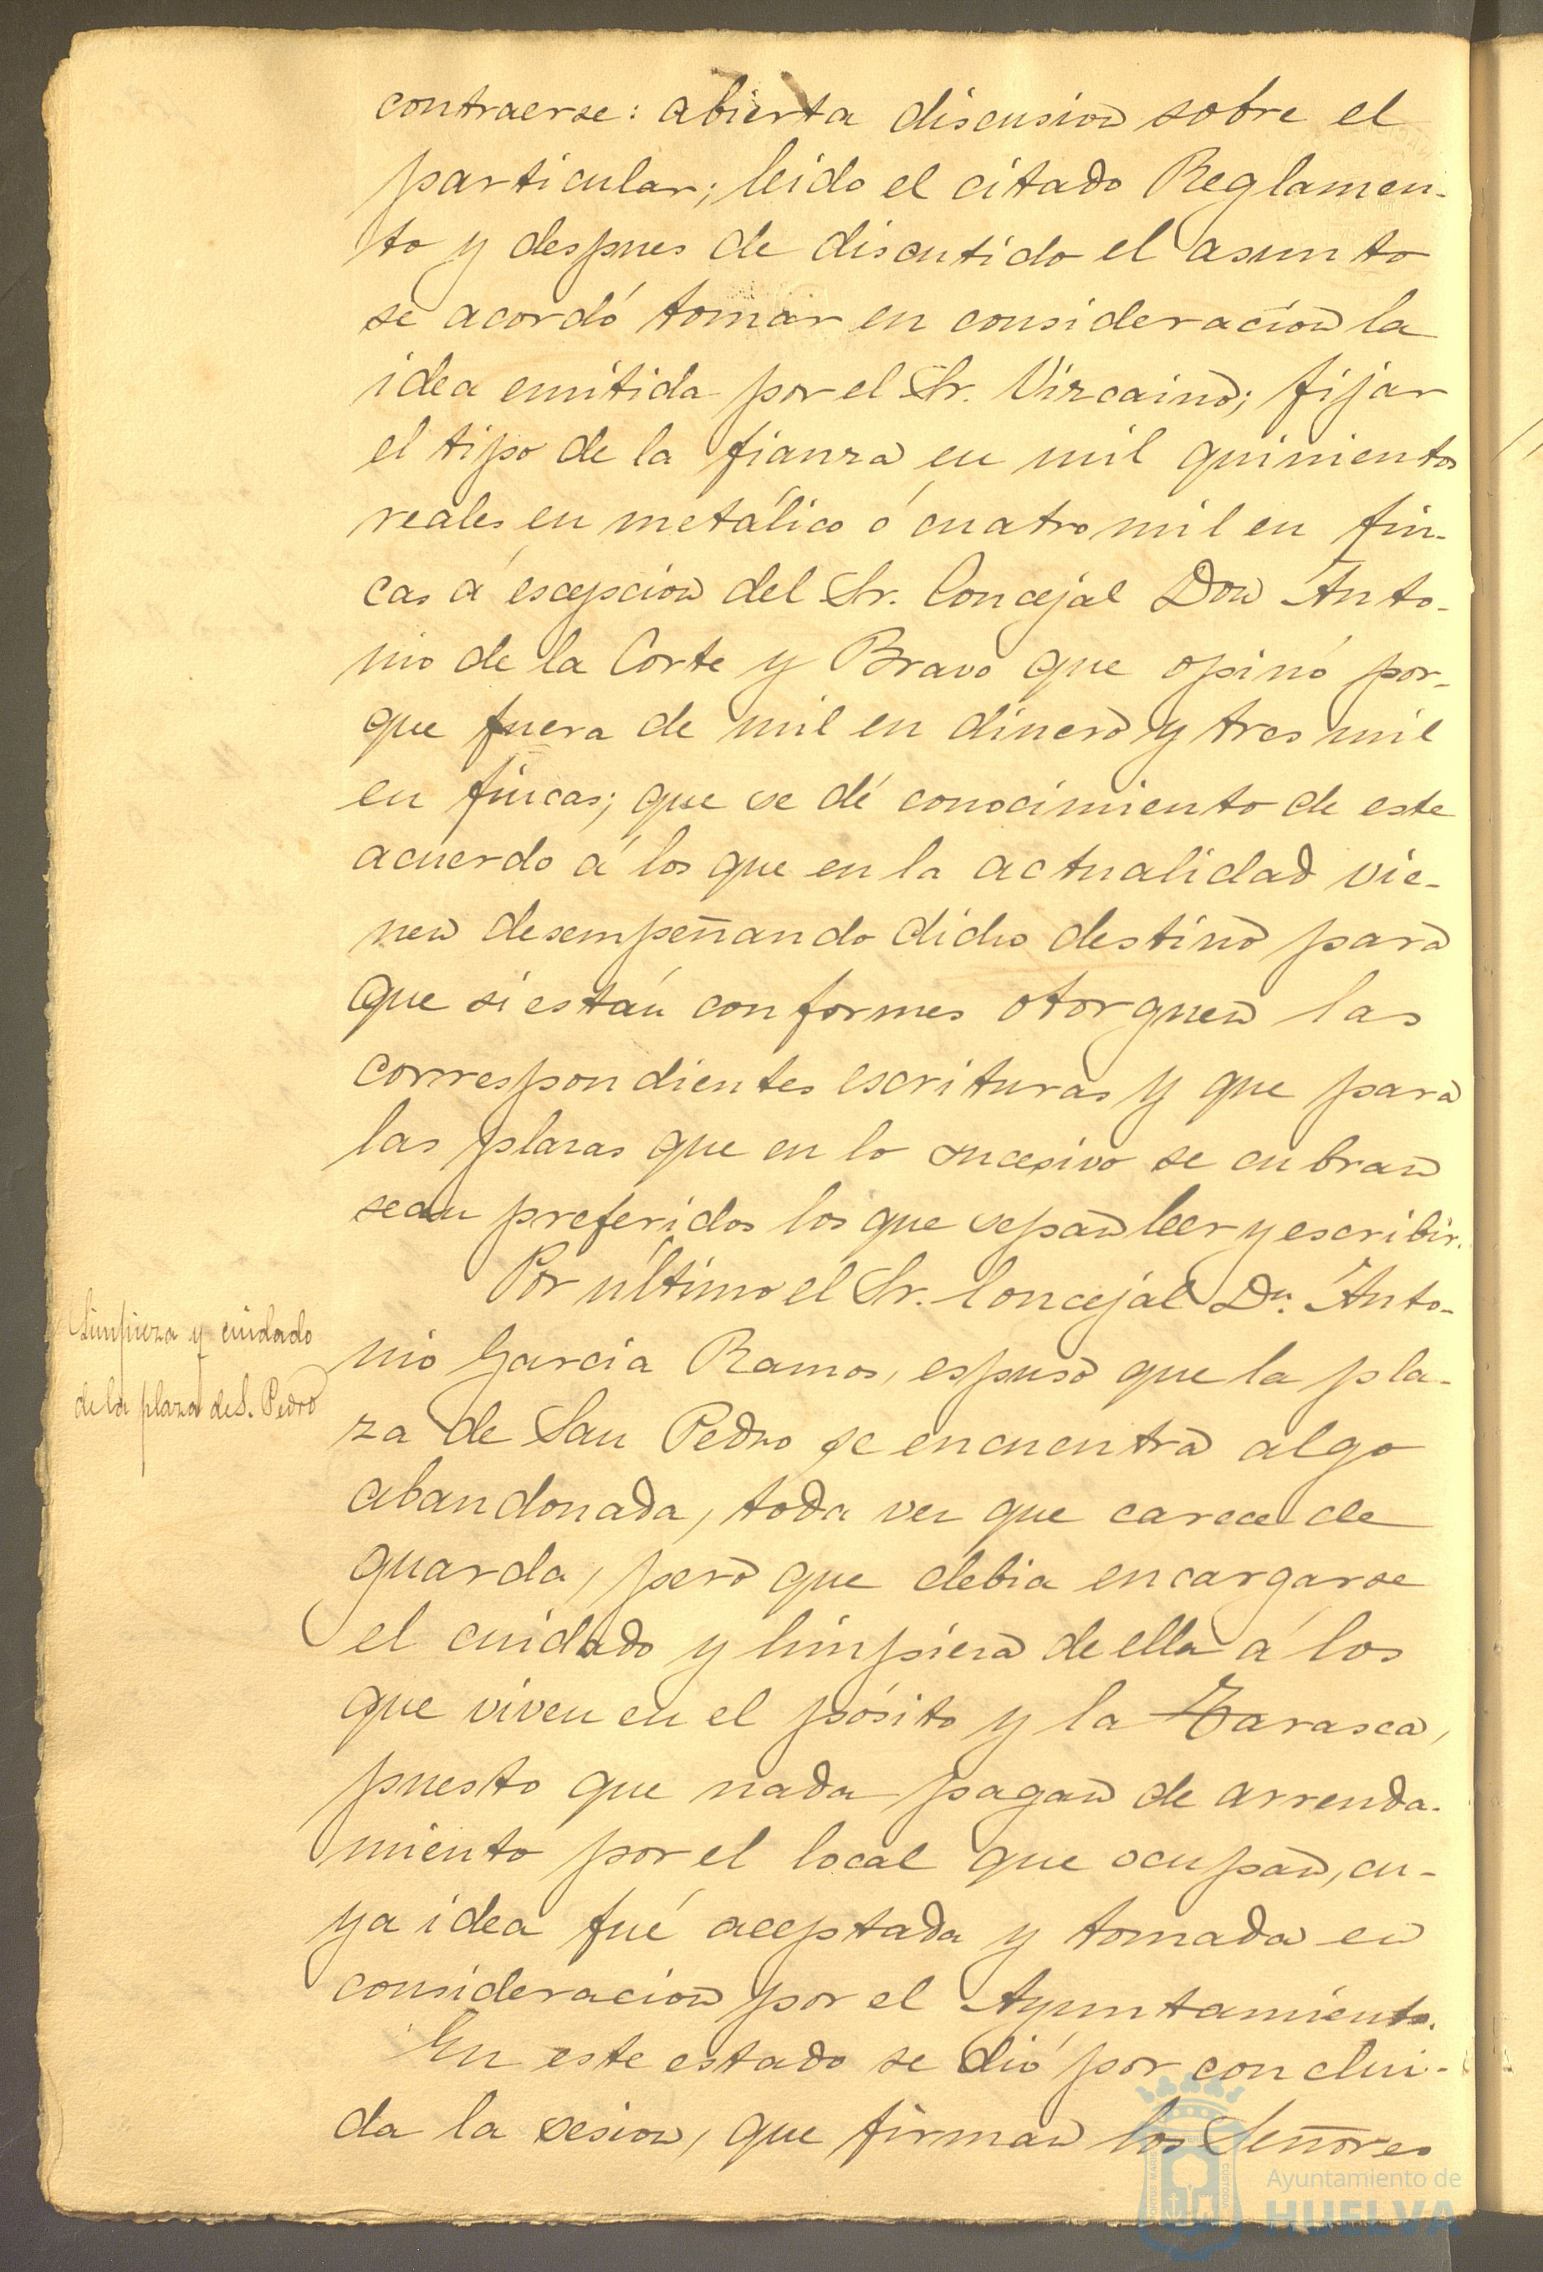 contraerse: abierta discusion sobre el
particular; leido el citado Reglamen-
to y despues de discutido el asunto
se acordó tomar en consideracion la
idea emitida por el Sr. Vizcaino; fijar
el tipo de la fianza en mil quinientos
reales en metálico ó cuatro mil en fin-
cas á escepcion del Sr. Concejal Don Anto-
nio de la Corte y Bravo que opinó por-
que fuera de mil en dinero y tres mil
en fincas; que se dé conocimiento de este
acuerdo á los que en la actualidad vie-
nen desempeñando dicho destino para
que si están conformes otorguen las
correspondientes escrituras y que para
las plazas que en lo sucesivo se cubran
sean preferidos los que sepan leer y escribir.
Por último el Sr. Concejal Dn. Anto-
Limpieza y cuidado
de la plaza de S. Pedro
nio Garcia Ramos, espuso que la pla-
za de San Pedro se encuentra algo
abandonada, toda vez que carece de
guarda, pero que debia encargarse
el cuidado y limpieza de ella á los
que viven en el pósito y la Tarasca,
puesto que nada pagan de arrenda-
miento por el local que ocupan, cu-
ya idea fué aceptada y tomada en
consideracion por el Ayuntamiento.
En este estado se dió por conclui-
da la sesion, que firman los Señores
Ayuntamiento de
HUELVA